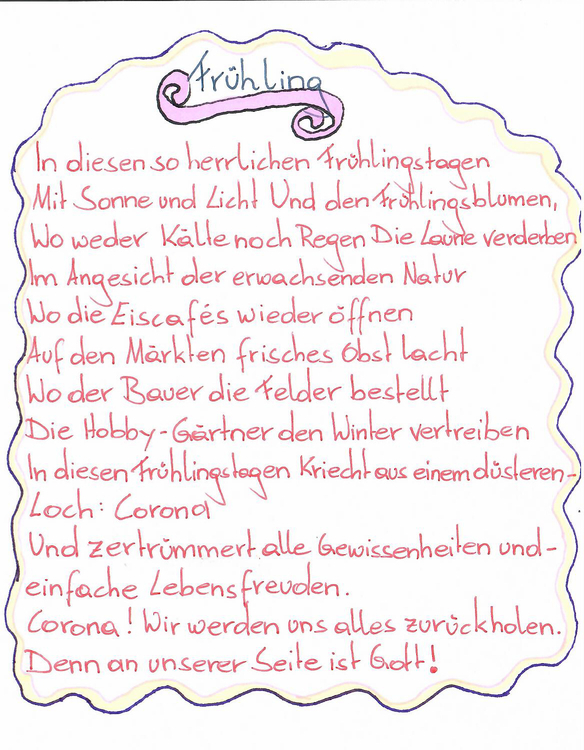 Frühling
In diesen so herrlichen Frühlingstagen
Mit Sonne und Licht Und den Frühlingsblumen,
Wo weder Kälte noch Regen Die Laune verderben
Im Angesicht der erwachsenden Natur
Wo die Eiscafés wieder öffnen
Auf den Märkten frisches Obst lacht
Wo der Bauer die Felder bestellt
Die Hobby-Gärtner den Winter vertreiben
In diesen Frühlingstagen Kriecht aus einem düsteren-
Loch: Corona
Und zertrümmert alle Gewissenheiten und-
einfache Lebensfreuden.
Corona! Wir werden uns alles zurückholen.
Denn an unserer Seite ist Gott!